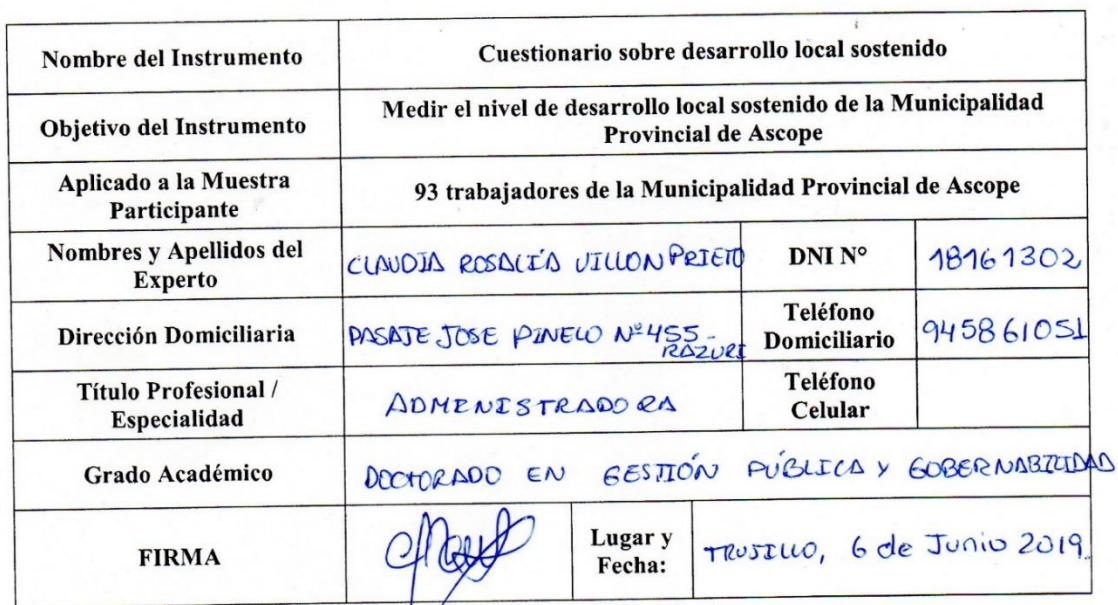 Nombre del Instrumento
Cuestionario sobre desarrollo local sostenido
Objetivo del Instrumento
Medir el nivel de desarrollo local sostenido de la Municipalidad
Provincial de Ascope
Aplicado a la Muestra
Participante
93 trabajadores de la Municipalidad Provincial de Ascope
Nombres y Apellidos del
Experto
CLAUDIA ROSALÍA VILLON PRIETO
DNI N°
18161302
Dirección Domiciliaria
PASAJE JOSE PINELO Nº 455 -
RAZURI
Teléfono
Domiciliario
945861051
Título Profesional /
Especialidad
ADMINISTRADORA
Teléfono
Celular
Grado Académico
DOCTORADO EN GESTIÓN PÚBLICA Y GOBERNABILIDAD
FIRMA
Lugar y
Fecha:
TRUJILLO, 6 de Junio 2019.